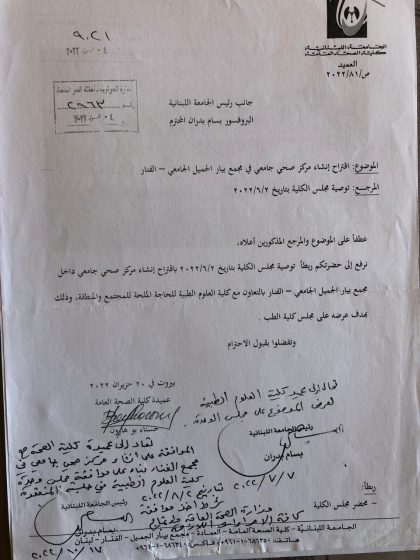 ٩٠٢١
الجامعة اللبنانية
كلية الصحة العامة
العميد
ص/٨١/٢٠٢٢
٢٩٦٣
جانب رئيس الجامعة اللبنانية
البروفسور بسام بدران المحترم
الموضوع: اقتراح إنشاء مركز صحي جامعي في مجمع بيار الجميل الجامعي – الفنار
المرجع: توصية مجلس الكلية بتاريخ ٢٠٢٢/٦/٢
عطفاً على الموضوع والمرجع المذكورين أعلاه،
نرفع إلى حضرتكم ربطاً توصية مجلس الكلية بتاريخ ٢٠٢٢/٦/٢ باقتراح إنشاء مركز صحي جامعي داخل
مجمع بيار الجميل الجامعي – الفنار بالتعاون مع كلية العلوم الطبية للحاجة الملحة للمجتمع والمنطقة، وذلك
بهدف عرضه على مجلس كلية الطب.
وتفضلوا بقبول الاحترام
بيروت في ٢٠ حزيران ٢٠٢٢
عميدة كلية الصحة العامة
حسناء بو هارون
تحال إلى عميد كلية العلوم الطبية
لعرض الموضوع على مجلس الوحدة
رئيس الجامعة اللبنانية
بسام بدران
٢٠٢٢/٧/٧
تعاد إلى عميدة كلية الصحة مع
الموافقة على إنشاء مركز صحي جامعي في
مجمع الفنار بناء على موافقة مجلس وحدة
كلية العلوم الطبية في جلسته المنعقدة
بتاريخ ٢٠٢٢/٨/٢
رئيس الجامعة اللبنانية
بسام بدران
ربطاً:
- محضر مجلس الكلية
الجامعة اللبنانية – كلية الصحة العامة – العمادة – مجمع بيار الجميل – الفنار – لبنان